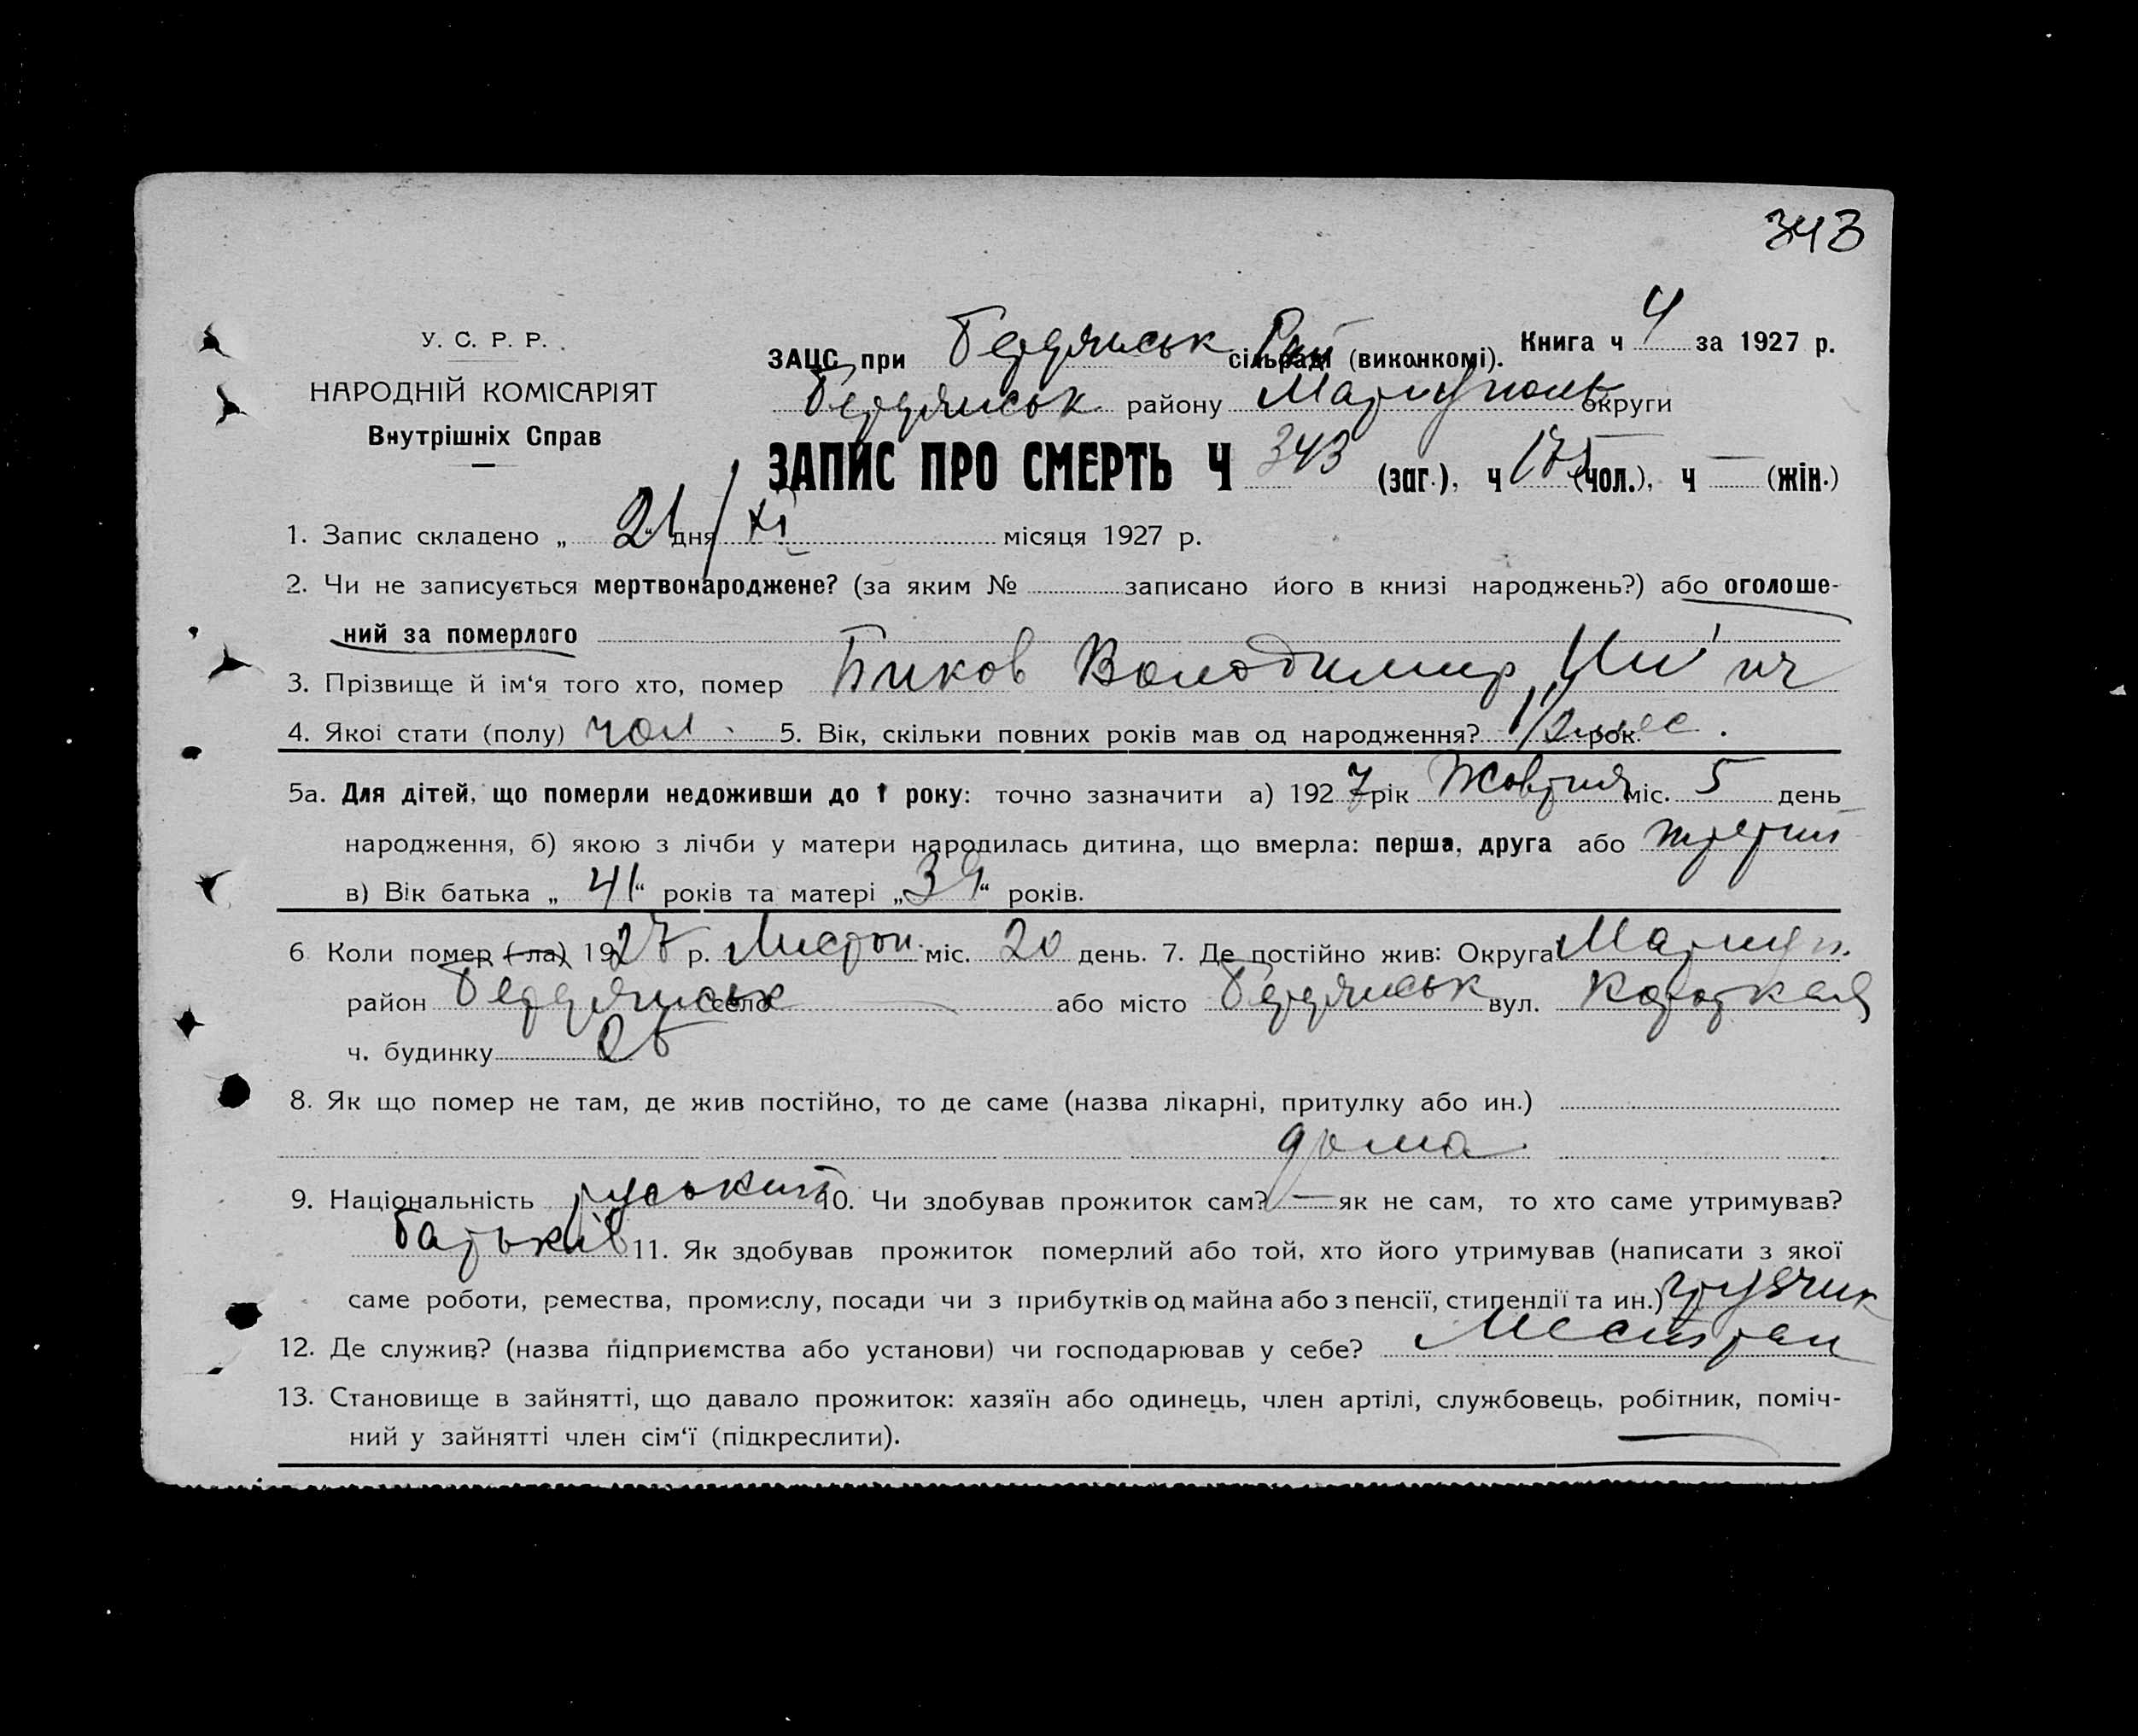 343
У. С. Р. Р.
НАРОДНІЙ КОМІСАРІЯТ
Внутрішніх Справ
ЗАЦС при Бердянськ сільраді (виконкомі). Книга ч 4 за 1927 р.
Бердянськ району Маріуполь округи
ЗАПИС ПРО СМЕРТЬ Ч 343 (заг.), ч 175 (чол.), ч — (жін.)
1. Запис складено „ 21 “ дня / XI місяця 1927 р.
2. Чи не записується мертвонароджене? (за яким № записано його в книзі народжень?) або оголоше-
ний за померлого
3. Прізвище й ім‘я того хто, помер Биков Володимир
4. Якої стати (полу) чол. 5. Вік, скільки повних років мав од народження? 1 1/2 мес. рок.
5а. Для дітей, що померли недоживши до 1 року: точно зазначити а) 1927 рік Жовтня міс. 5 день
народження, б) якою з лічби у матери народилась дитина, що вмерла: перша, друга або третий
в) Вік батька „ 41 “ років та матері „ 39 “ років.
6 Коли помер (-ла) 1927 р. Листоп. міс. 20 день. 7. Де постійно жив: Округа Мариуп.
район Бердянськ село або місто Бердянськ вул. Короткая
ч. будинку
8. Як що помер не там, де жив постійно, то де саме (назва лікарні, притулку або ин.)
дома
9. Національність руський 10. Чи здобував прожиток сам? — як не сам, то хто саме утримував?
батьків 11. Як здобував прожиток померлий або той, хто його утримував (написати з якої
саме роботи, ремества, промислу, посади чи з прибутків од майна або з пенсії, стипендії та ин.) грузчик
12. Де служив? (назва підприємства або установи) чи господарював у себе? Местран
13. Становище в зайнятті, що давало прожиток: хазяїн або одинець, член артілі, службовець, робітник, поміч-
ний у зайнятті член сім‘ї (підкреслити).